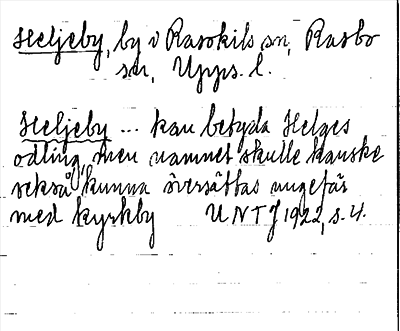 Heljeby, by v Rasokils sn, Rasbo
sn, Upps. l.
Heljeby ... kan betyda Helges
odling, men namnet skulle kanske
också kunna översättas ungefär
med kyrkby UNTJ 1922, s. 4.